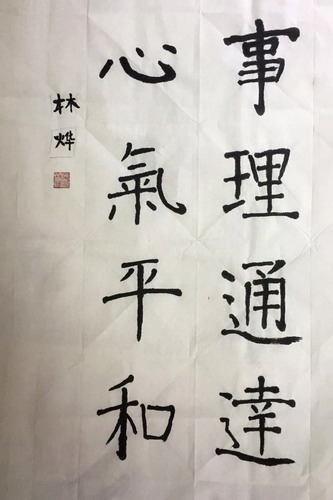 事理通達
心氣平和
林烨